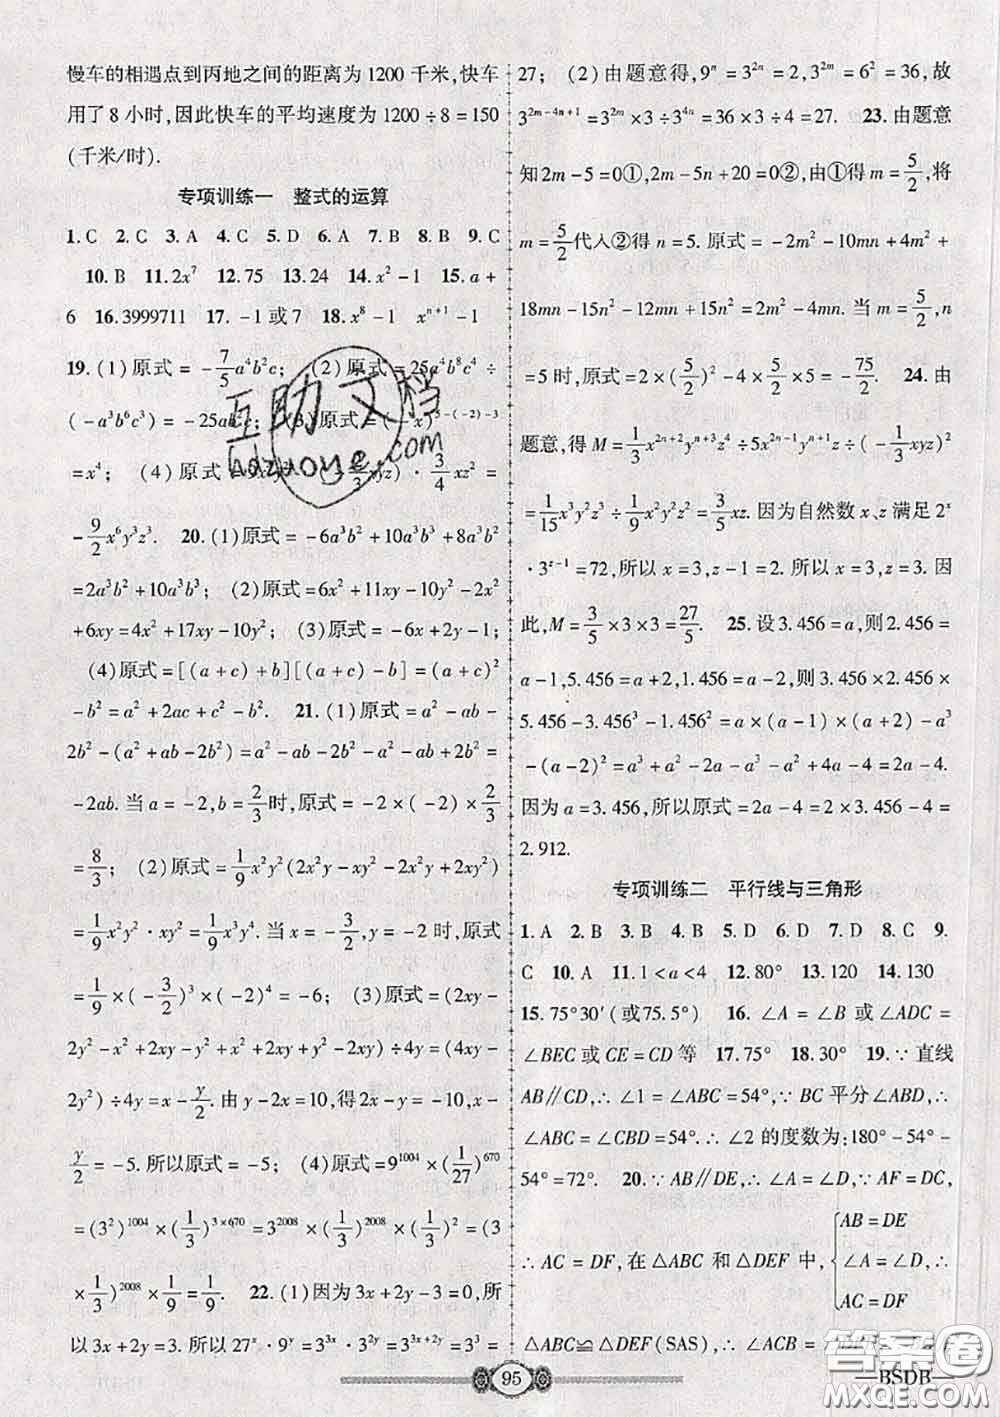 慢车的相遇点到丙地之间的距离为1200千米,快车
用了8小时,因此快车的平均速度为1200÷8=150
(千米/时).
专项训练一 整式的运算
1.C 2.C 3.A 4.C 5.D 6.A 7.B 8.B 9.C
10.B 11.2x⁷ 12.75 13.24 14.x²-1 15.a+
6 16.3999711 17.-1或7 18.x⁸-1 xⁿ⁺¹-1
19.(1)原式=-7/5a⁴b²c; (2)原式=25a⁴b⁸c⁴÷
(-a³b⁶c³)=-25ab²c; (3)原式=(-x)^(5-(-2)-3)
=x⁴; (4)原式=
xyz)·3/4xz²=
-9/2x⁶y³z³. 20.(1)原式=-6a³b²+10a³b³+8a³b²
=2a³b²+10a³b³; (2)原式=6x²+11xy-10y²-2x²
+6xy=4x²+17xy-10y²; (3)原式=-6x+2y-1;
(4)原式=[(a+c)+b][(a+c)-b]=(a+c)²
-b²=a²+2ac+c²-b². 21.(1)原式=a²-ab-
2b²-(a²+ab-2b²)=a²-ab-2b²-a²-ab+2b²=
-2ab.当a=-2,b=2/3时,原式=-2×(-2)×2/3
=8/3; (2)原式=1/9x²y²(2x²y-xy²-2x²y+2xy²)
=1/9x²y²·xy²=1/9x³y⁴.当x=-3/2,y=-2时,原式
=1/9×(-3/2)³×(-2)⁴=-6; (3)原式=(2xy-
2y²-x²+2xy-y²+x²+2xy+y²)÷4y=(4xy-
2y²)÷4y=x-y/2.由2x-y=10,得2x-y=-10,x-
y/2=-5.所以原式=-5; (4)原式=9¹⁰⁰⁴×(1/27)⁶⁷⁰
=(3²)¹⁰⁰⁴×(1/3)^(3×670)=3²⁰⁰⁸×(1/3)²⁰⁰⁸×(1/3)²=(3
×1/3)²⁰⁰⁸×1/9=1/9. 22.(1)因为3x+2y-3=0,所
以3x+2y=3.所以27ˣ·9ʸ=3³ˣ·3²ʸ=3³ˣ⁺²ʸ=3³=
27; (2)由题意得,9ⁿ=3²ⁿ=2,3²ᵐ=6²=36,故
3^(2m-4n+1)=3²ᵐ×3÷3⁴ⁿ=36×3÷4=27. 23.由题意
知2m-5=0①,2m-5n+20=0②,由①得m=5/2,将
m=5/2代入②得n=5.原式=-2m²-10mn+4m²+
18mn-15n²-12mn+15n²=2m²-4mn.当m=5/2,n
=5时,原式=2×(5/2)²-4×5/2×5=-75/2. 24.由
题意,得M=1/3x²ⁿ⁺²yⁿ⁺³z⁴÷5x²ⁿ⁻¹yⁿ⁺¹z÷(-1/3xyz)²
=1/15x³y²z³÷1/9x²y²z²=3/5xz.因为自然数x、z满足2ˣ
·3ᶻ⁻¹=72,所以x=3,z-1=2.所以x=3,z=3.因
此,M=3/5×3×3=27/5. 25.设3.456=a,则2.456=
a-1,5.456=a+2,可得3.456×2.456×
5.456-3.456³-1.456²=a×(a-1)×(a+2)-a³
-(a-2)²=a³+a²-2a-a³-a²+4a-4=2a-4.
因为a=3.456,所以原式=2a-4=2×3.456-4=
2.912.
专项训练二 平行线与三角形
1.A 2.B 3.B 4.B 5.D 6.D 7.D 8.C 9.
C 10.A 11.1<a<4 12.80° 13.120 14.130
15.75°30′(或75.5°) 16.∠A=∠B或∠ADC=
∠BEC或CE=CD等 17.75° 18.30° 19.∵直线
AB∥CD,∴∠1=∠ABC=54°,∵BC平分∠ABD,∴
∠ABC=∠CBD=54°.∴∠2的度数为:180°-54°-
54°=72°. 20.∵AB∥DE,∴∠A=∠D,∵AF=DC,
∴AC=DF,在△ABC和△DEF中,{AB=DE ∠A=∠D, AC=DF ∴
△ABC≌△DEF(SAS),∴∠ACB=
95
BSDB
互助文档
hdzuoye.com
答案圈
MXQE.COM